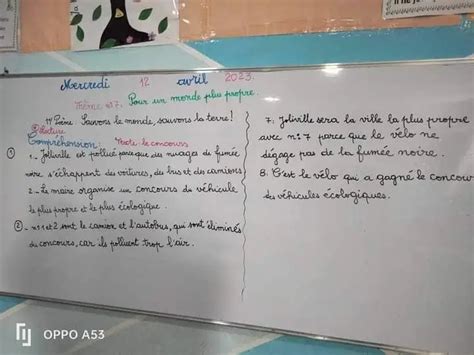 Mercredi 12 avril 2023.
Thème n°7. Pour un monde plus propre.
Sauvons le monde, sauvons la terre!
Lecture
Compréhension: Texte: le concours
① 1_ Joliville est pollué parce que des nuages de fumée
noire s'échappent des voitures, des bus et des camions
2_ Le maire organise un concours du véhicule
le plus propre et le plus écologique.
② _ n°1 et 2 sont le camion et l'autobus, qui sont éliminés
du concours, car ils polluent trop l'air.
7. Joliville sera la ville la plus propre
avec n°7 parce que le vélo ne
dégage pas de la fumée noire.
8. C'est le vélo qui a gagné le concours
des véhicules écologiques.
OPPO A53